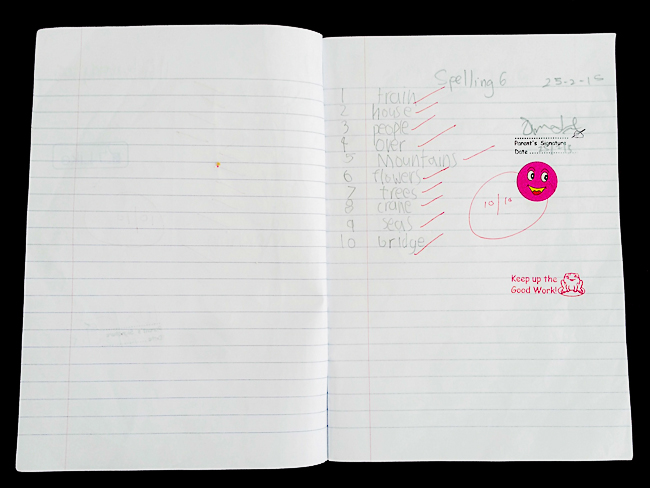 Spelling 6 25-2-15
1 train
2 house
3 people
4 over
5 Mountains
6 flowers
7 trees
8 crane
9 seas
10 bridge
Parent's Signature
Date
10/10
Keep up the
Good Work!